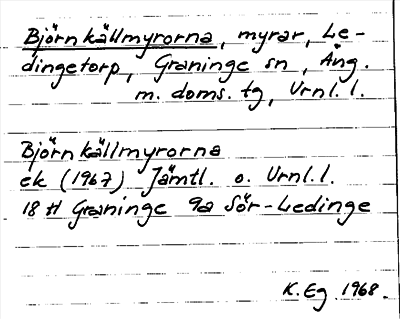 Björnkällmyrorna, myrar, Le-
dingetorp, Graninge sn, Ång.
m. doms. tg, Vrnl. l.
Björnkällmyrorna
ek (1967) Jämtl. o. Vrnl. l.
18 H Graninge 9a Sör-Ledinge
K. Eg 1968.